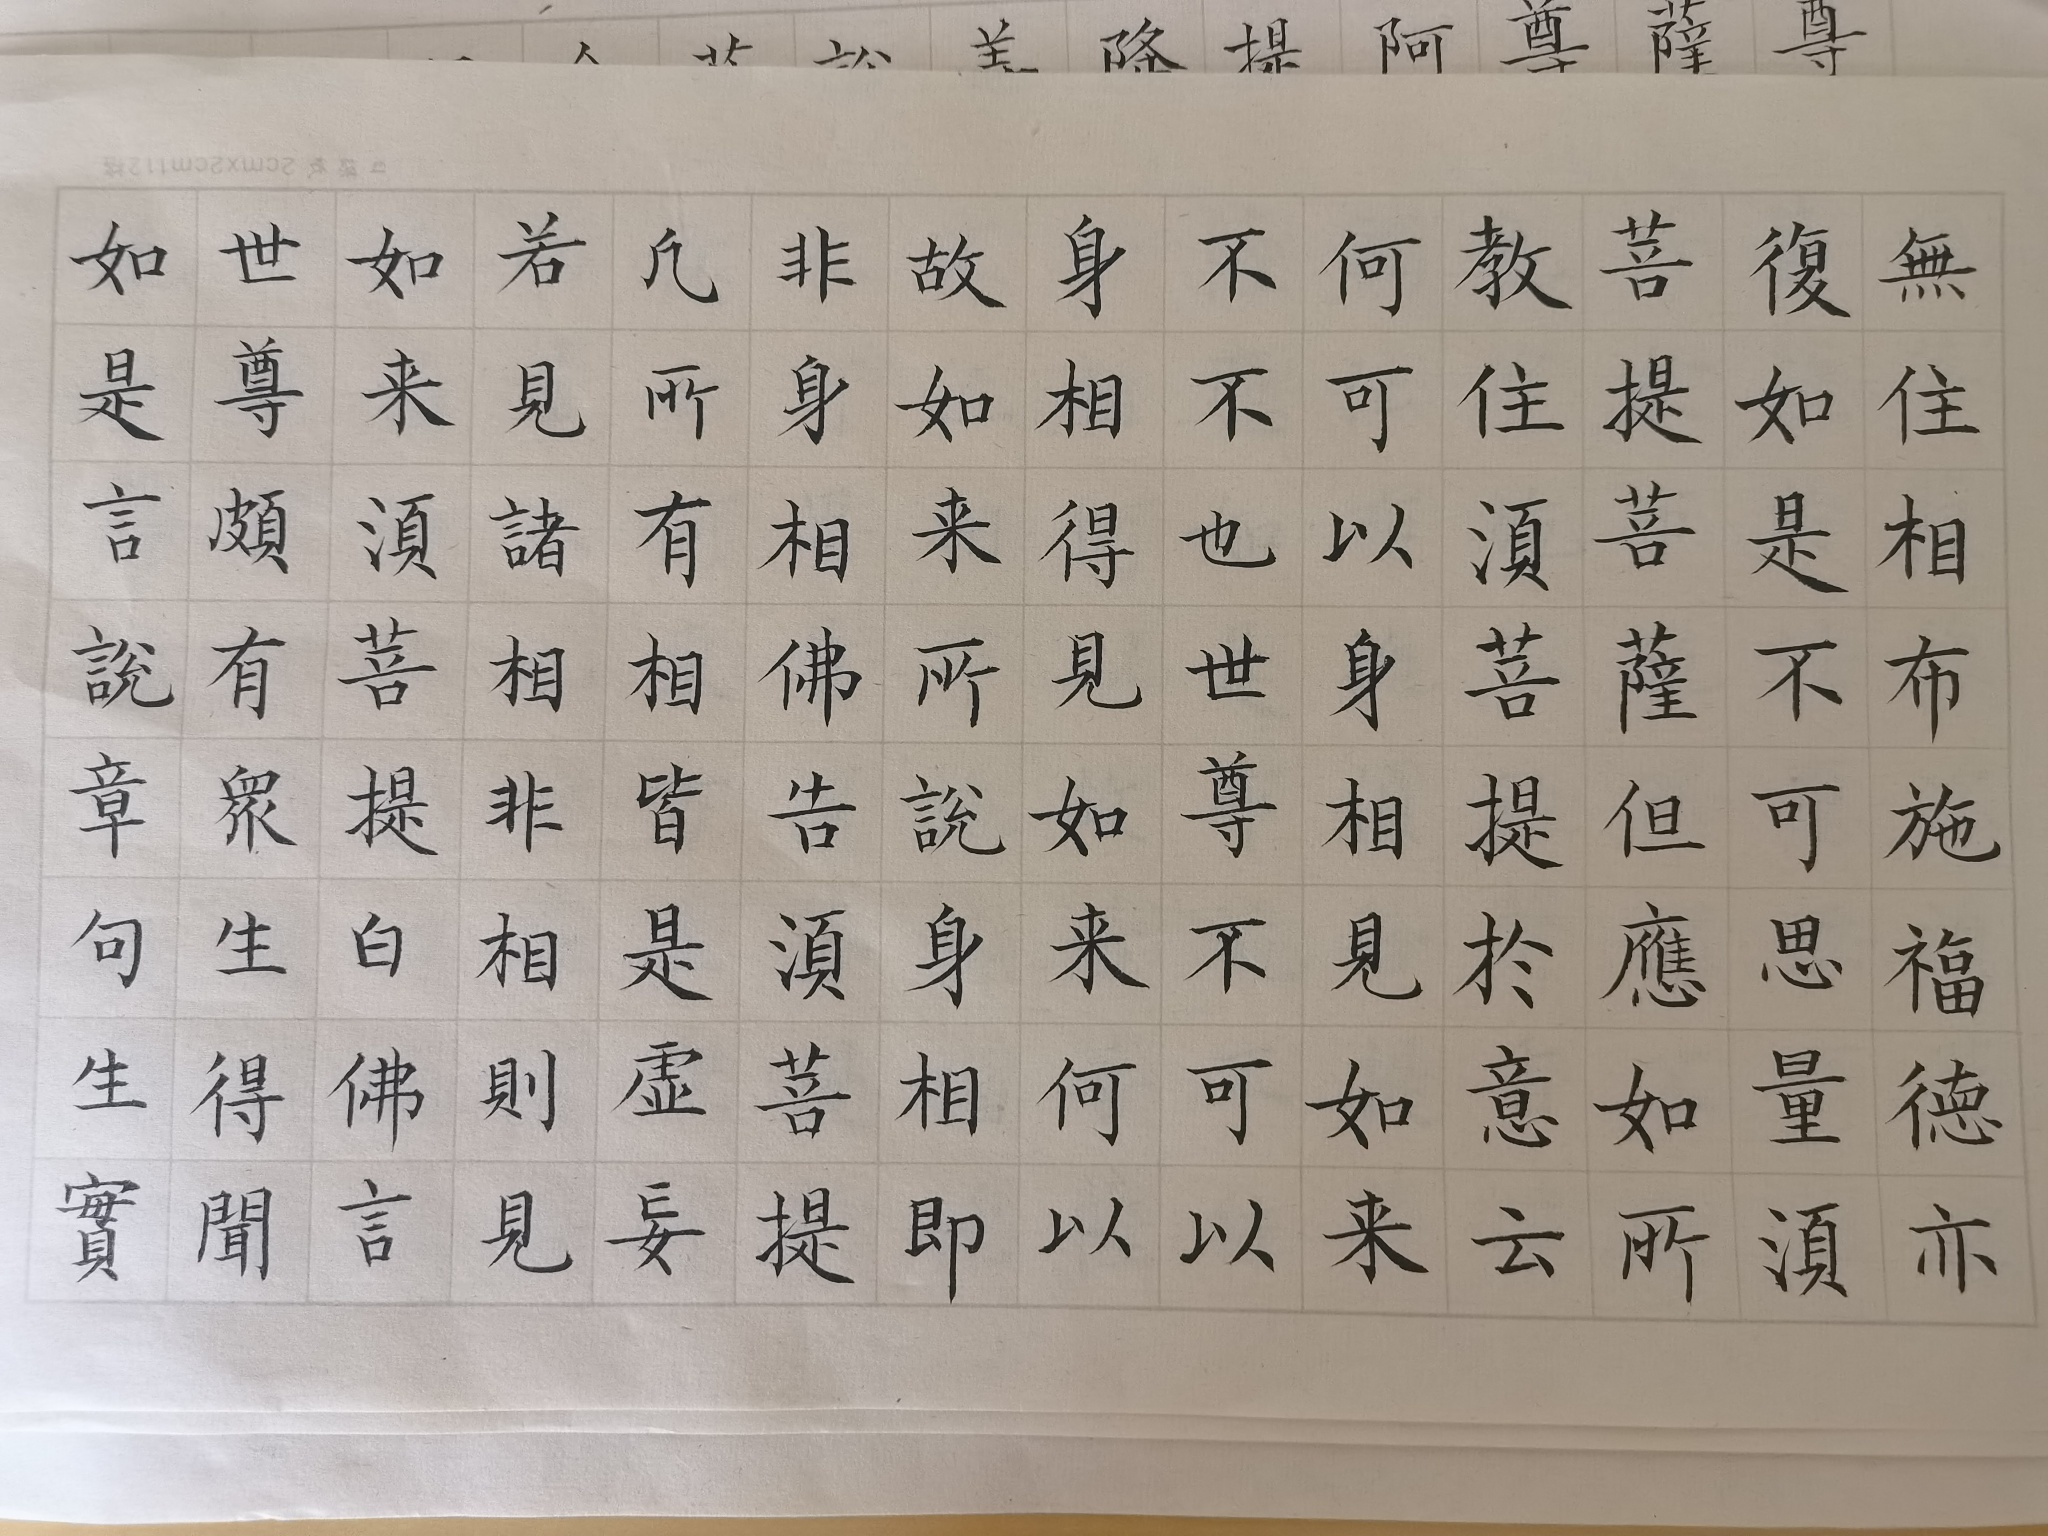 尊
薩
尊
阿
提
降
無住相布施福德亦
復如是不可思量須
菩提菩薩但應如所
教住須菩提於意云
何可以身相見如来
不不也世尊不可以
身相得見如来何以
故如来所說身相即
非身相佛告須菩提
凡所有相皆是虛妄
若見諸相非相則見
如来須菩提白佛言
世尊頗有眾生得聞
如是言說章句生實